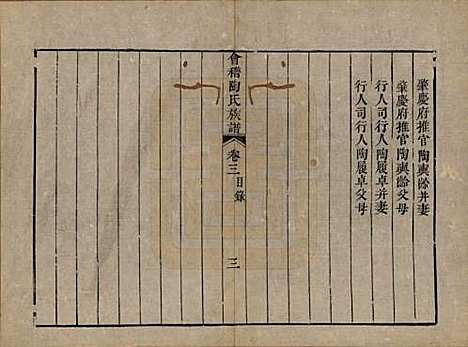 肇慶府推官陶奭齡并妻
肇慶府推官陶奭齡父母
行人司行人陶履卓并妻
行人司行人陶履卓父母
會稽陶氏族譜
卷三目錄
三